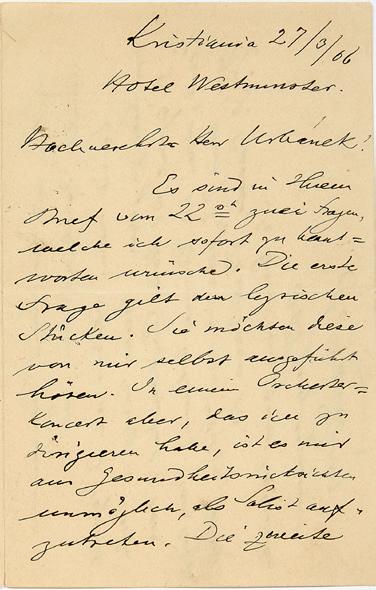 Kristiania 27/3/06
Hotel Westminster.
Hochverehrter Herr Urbánek!
Es sind in Ihrem
Brief vom 22st zwei Fragen,
welche ich sofort zu beant=
worten wünsche. Die erste
Frage gilt den lyrischen
Stücken. Sie möchten diese
von mir selbst ausgeführt
hören. In einem Orchester=
Konzert aber, das ich zu
dirigieren habe, ist es mir
aus Gesundheitsrücksichten
unmöglich, als Solist auf=
zutreten. Die zweite